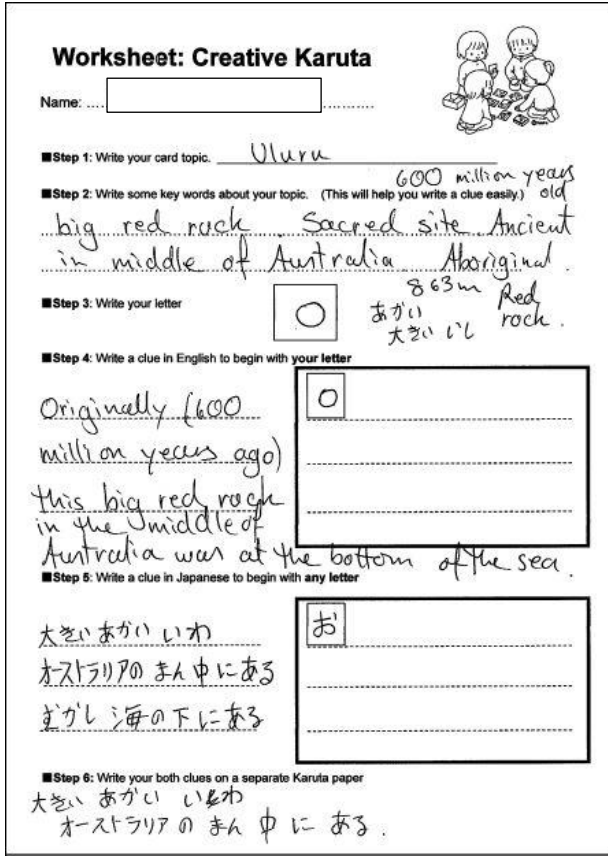 Worksheet: Creative Karuta
Name: .... ..........
■Step 1: Write your card topic. Uluru
600 million years
■Step 2: Write some key words about your topic. (This will help you write a clue easily.) old
big red rock. Sacred site. Ancient
in middle of Australia Aboriginal.
863m Red
■Step 3: Write your letter
O あかい rock.
大きい いし
■Step 4: Write a clue in English to begin with your letter
O
Originally (600
million years ago)
this big red rock
in the middle of
Australia was at the bottom of the sea.
■Step 5: Write a clue in Japanese to begin with any letter
お
大きい あかい いわ
オーストラリアの まん中にある
むかし 海の下にある
■Step 6: Write your both clues on a separate Karuta paper
大きい あかい いわ
オーストラリアの まん中に ある.